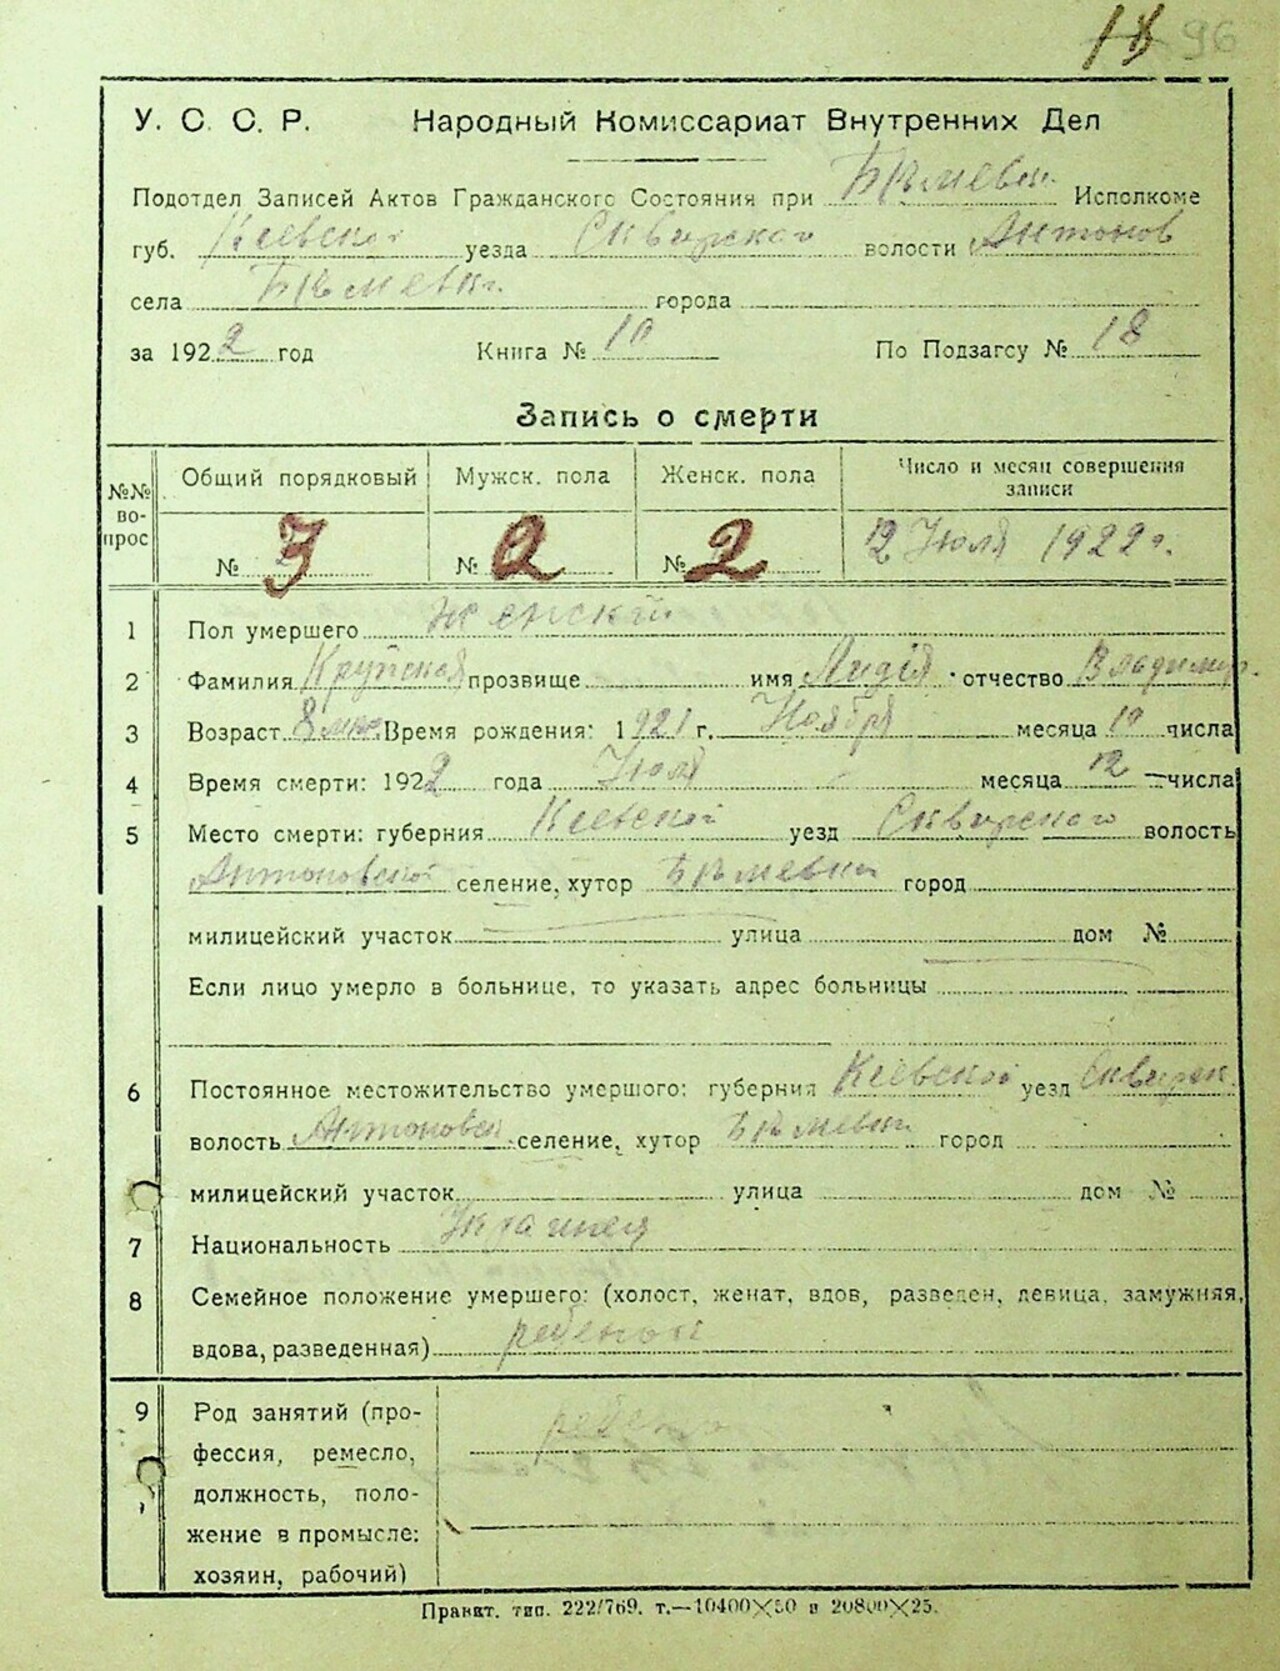 18 96
У. С. С. Р. Народный Комиссариат Внутренних Дел
Подотдел Записей Актов Гражданского Состояния при Исполкоме
губ. Киевской уезда Сквирского волости Антонов
села города
за 1922 год Книга № 10 По Подзагсу № 18
Запись о смерти
№№ во-прос Общий порядковый Мужск. пола Женск. пола Число и месяц совершения записи
№ 3 № 2 № 2 12 Июля 1922 г.
1 Пол умершего женский
2 Фамилия Крупская прозвище имя Лидія отчество Владимир.
3 Возраст 8 мес. Время рождения: 1921 г. Ноября месяца 10 числа
4 Время смерти: 1922 года Июля месяца 12 числа
5 Место смерти: губерния Киевской уезд Сквирского волость
Антоновской селение, хутор город
милицейский участок улица дом №
Если лицо умерло в больнице, то указать адрес больницы
6 Постоянное местожительство умершого: губерния Киевской уезд Сквирск.
волость Антоновск. селение, хутор город
милицейский участок улица дом №
7 Национальность
8 Семейное положение умершего: (холост, женат, вдов, разведен, девица, замужняя,
вдова, разведенная) ребенок
9 Род занятий (про-
фессия, ремесло,
должность, поло-
жение в промысле:
хозяин, рабочий)
Правит. тип. 222/769. т.—10400×50 и 20800×25.